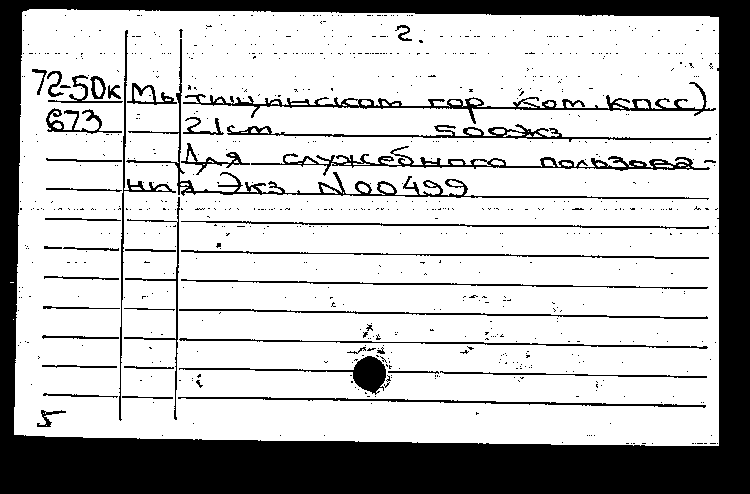 2.
72-50к Мытищинском гор. ком. КПСС)
673 21см. 500экз.
Для служебного пользова-
ния. Экз. N00499
5